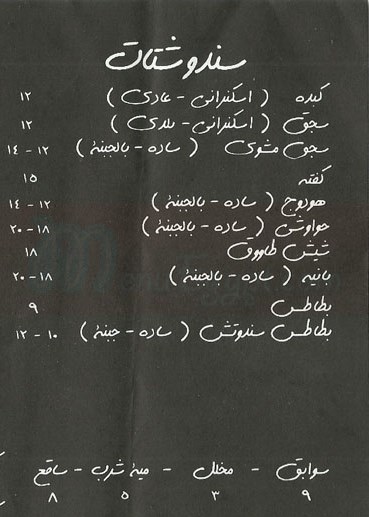 سندوشتات
كبده ( اسكندرانى - عادى ) ١٢
سجق ( اسكندرانى - بلدى ) ١٢
سجق مشوى ( ساده - بالجبنة ) ١٢ - ١٤
كفته ١٥
هوت دوج ( ساده - بالجبنة ) ١٢ - ١٤
حواوشى ( ساده - بالجبنة ) ١٨ - ٢٠
شيش طاووق ١٨
بانيه ( ساده - بالجبنة ) ١٨ - ٢٠
بطاطس ٩
بطاطس سندوتش ( ساده - جبنة ) ١٠ - ١٢
سوابق - مخلل - مية شرب - ساقع
٩ ٣ ٥ ٨